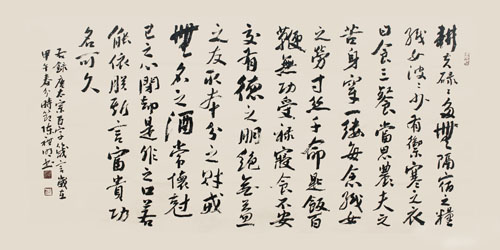 耕夫碌々多無隔宿之糧
織女波々少有禦寒之衣
日食三餐當思農夫之
苦身穿一縷每念織女
之勞寸絲千命匙飯百
鞭無功受祿寢食不安
交有德之朋絕無益
之友取本分之財戒
無名之酒常懷尅
己之心閉却是非之口若
能依朕斯言富貴功
名可久
右錄唐太宗百字箴言歲在
甲午春分時節陳書